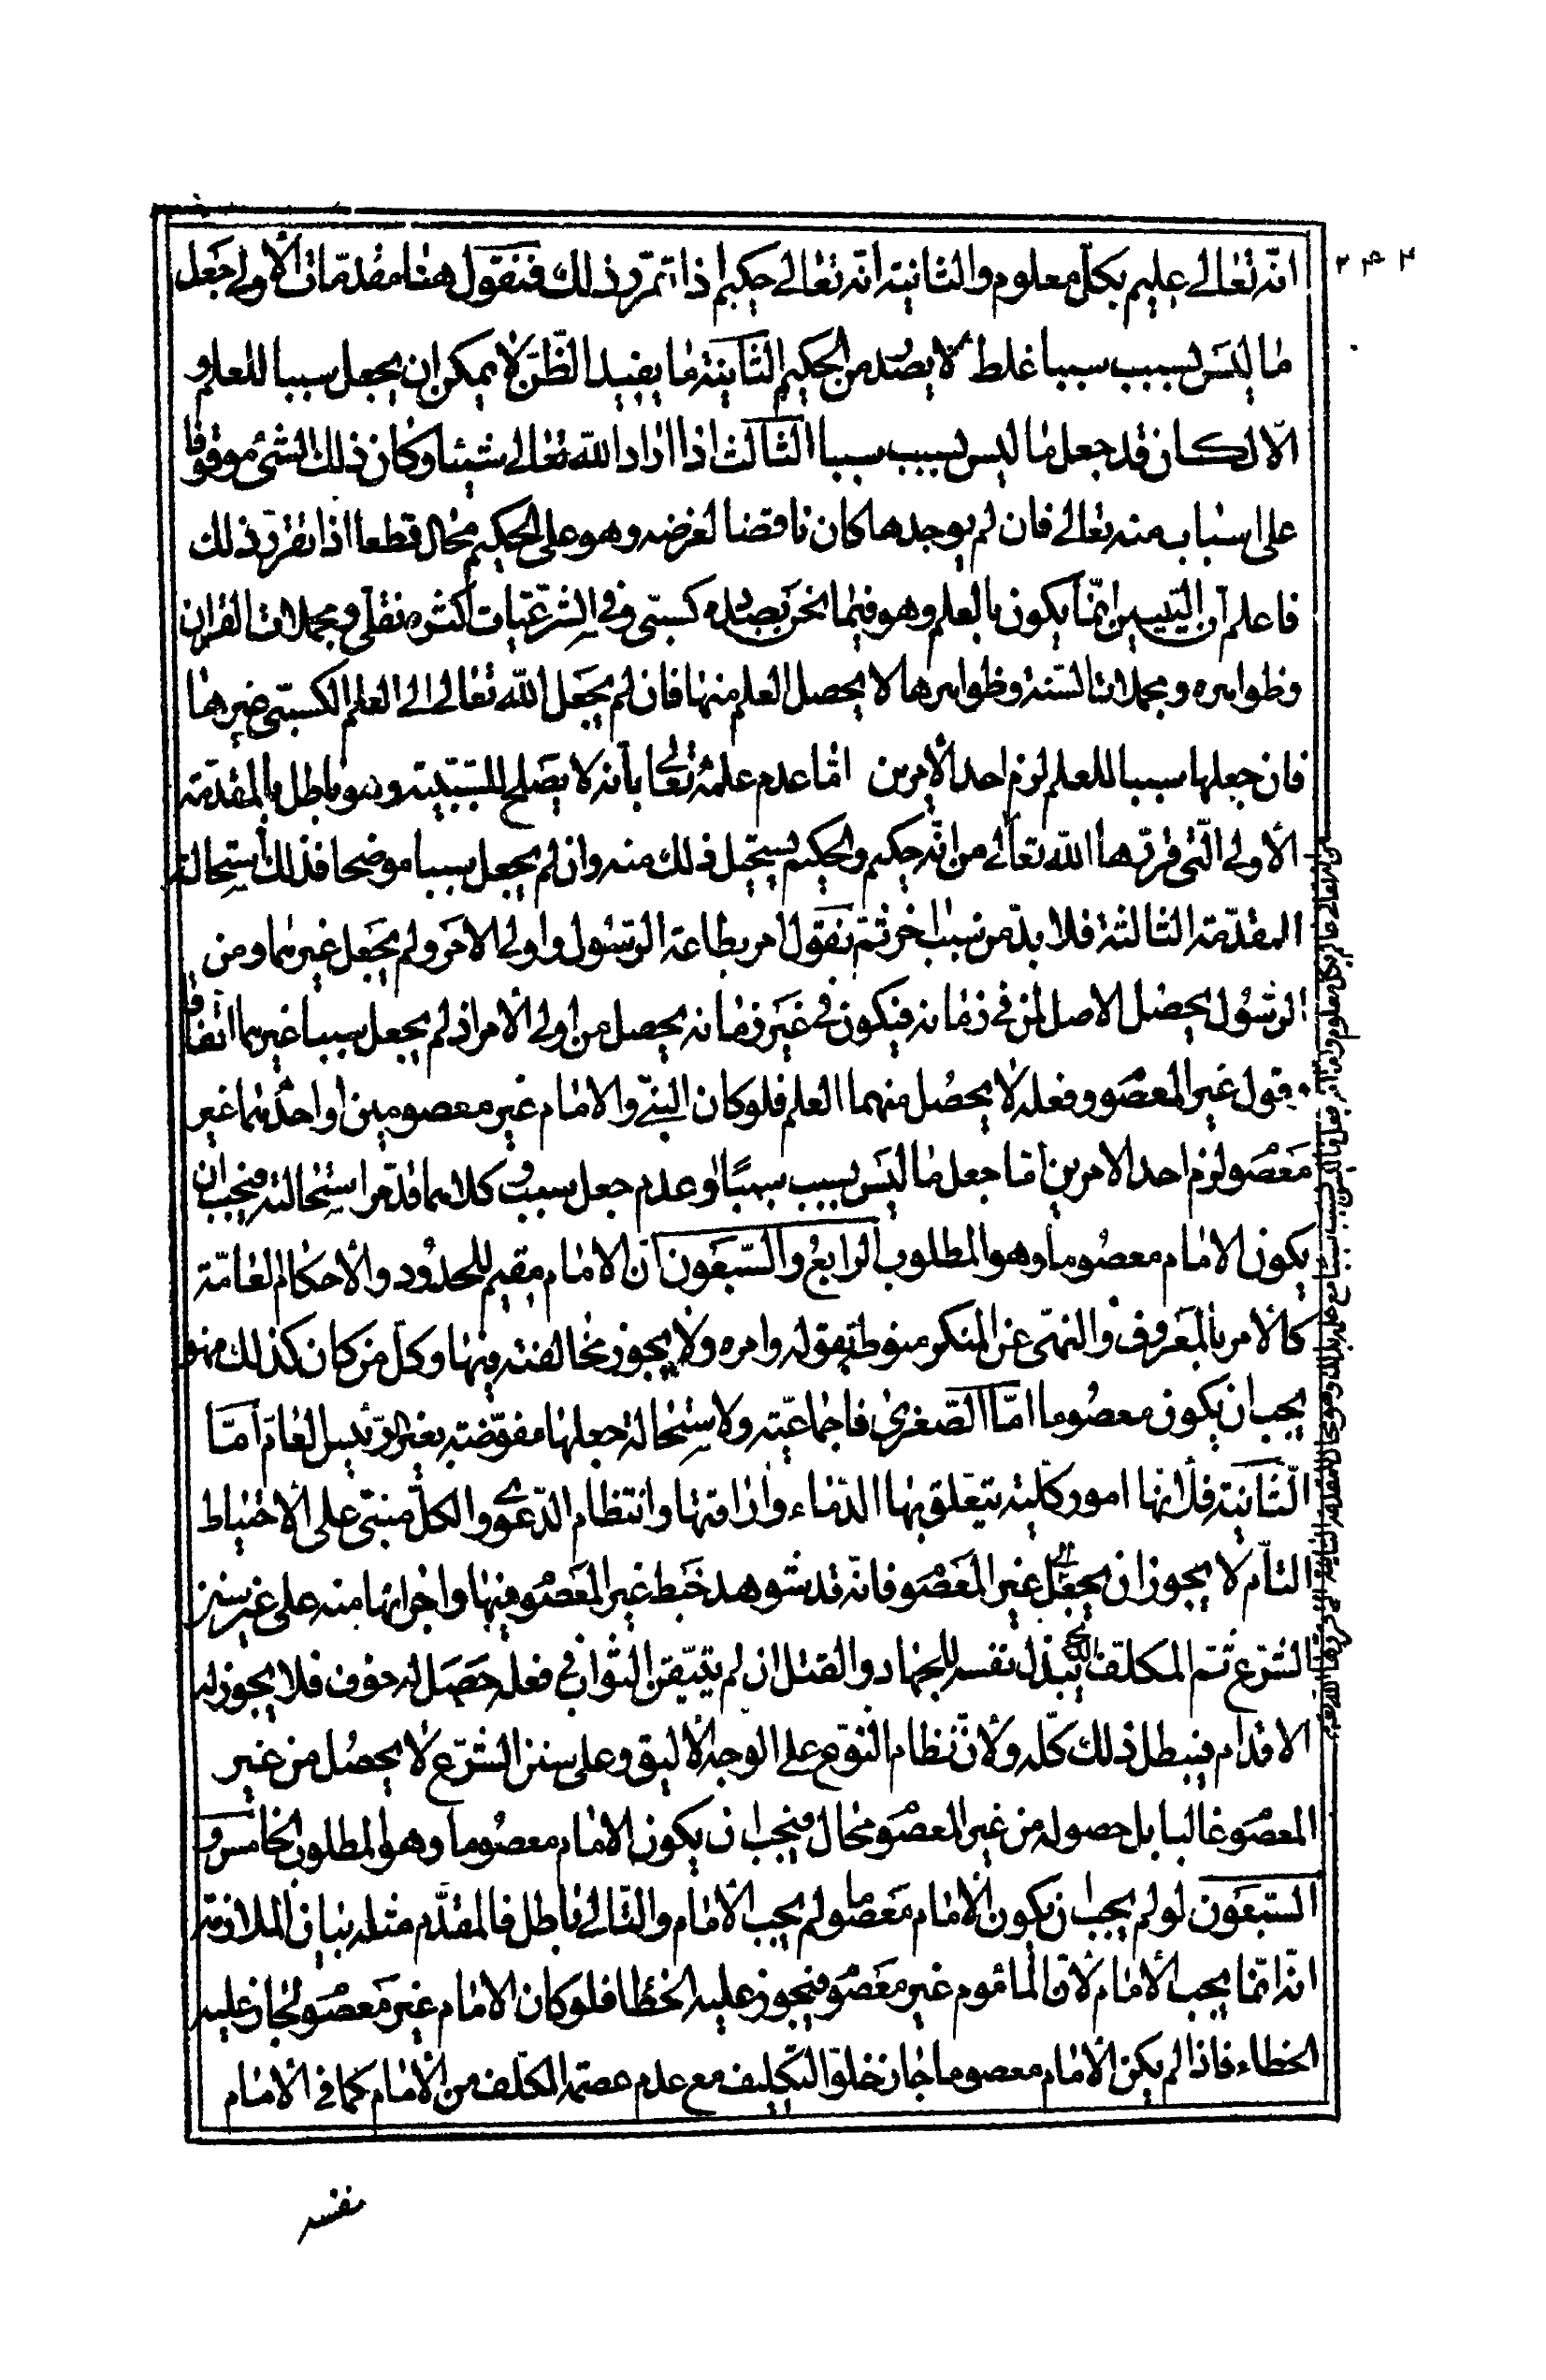 ٢٤٢
انّه تعالى عليم بكلّ معلوم والثانية انّه تعالى حكيم اذا تمّ وذلك فنقول هنا مقدّمات الأولى جعل
ما ليس بسبب سببا غلط لا يصدر من الحكيم الثانية ما يفيد الظّنّ لا يمكن ان يجعل سببا للعلم و
الّا لكان قد جعل ما ليس بسبب سببا الثالث اذا اراد الله تعالى شيئا وكان ذلك الشئ موقوفا
على اسباب منه تعالى فان لم يوجدها كان ناقضا لغرضه وهو على الحكيم محال قطعا اذا تقرّر ذلك
فاعلم انّ التبيين انّما يكون بالعلم وهو فيما نحن بصدده كسبيّ وفي الشّرعيّات اكثره نقليّ ومجملات القران
وظواهره ومجملات السّنة وظواهرها لا يحصل العلم منها فان لم يجعل الله تعالى الى العلم الكسبيّ غيرها
فان جعلها سببا للعلم لزم احد الأمرين امّا عدم علمه تعالى بأنّه لا يصلح للسّببيّة وهو باطل بالمقدّمة
الأولى الّتي قرّرها الله تعالى من انّه حكيم والحكيم يستحيل ذلك منه وان لم يجعل سببا موضحا فذلك استحالة
المقدّمة الثالثة فلا بدّ من سبب اخر ثمّ نقول امر بطاعة الرّسول واولى الامر ولم يجعل غيرهما ومن
الرّسول يحصل الاصل لمن في زمانه فيكون في غير زمانه يحصل من اولى الأمر اذ لم يجعل سببا غيرهما اتفاقا
وقول غير المعصو وفعله لا يحصل منهما العلم فلو كان النبيّ والامام غير معصومين او احدهما غير
معصو لزم احد الامرين امّا جعل ما ليس بسبب سببًا او عدم جعل سبب و كلاهما قد مرّ استحالته فيجب ان
يكون الامام معصوما وهو المطلوب الرابع والسّبعون انّ الامام مقيم للحدود والأحكام العامّة
كالأمر بالمعروف والنهى عن المنكر منوطة بقوله وامره ولا يجوز مخالفته فيها وكلّ من كان كذلك فهو
يجب ان يكون معصوما امّا الصّغرى فاجماعيّة ولاستحالة جعلها مفوّضة بغير الرّئيس العامّ امّا
الثّانية فلأنها امور كلّية يتعلّق بها الدّماء وإراقتها وانتظام الدّعوى والكلّ مبنيّ على الأحتياط
التّام لا يجوز ان يجعل الى غير المعصو فانّه قد شوهد خبط غير المعصو فيها واجرائها منه على غير سنن
الشّرع ثمّ المكلّف الّذى يبذل نفسه للجهاد والقتل ان لم يتيّقن الثواب في فعله حصل له خوف فلا يجوز له
الاقدام فيبطل ذلك كلّه ولأنّ نظام النّوع على الوجه الأليق وعلى سنن الشّرع لا يحصل من غير
المعصو غالبا بل حصوله من غير المعصو محال فيجب ان يكون الامام معصوما وهو المطلوب الخامس و
السّبعون لو لم يجب ان يكون الإمام معصوما لم يجب الامام والتّالي باطل فالمقدّم مثله بيان الملازمة
انّه انّما يجب الأمام لأنّ المأموم غير معصو فيجوز عليه الخطأ فلو كان الامام غير معصو لجاز عليه
الخطاء فاذا لم يكن الأمام معصوما جاز خلوّ التّكليف مع عدم عصمة المكلّف من الأمام كما في الأمام
نفسه